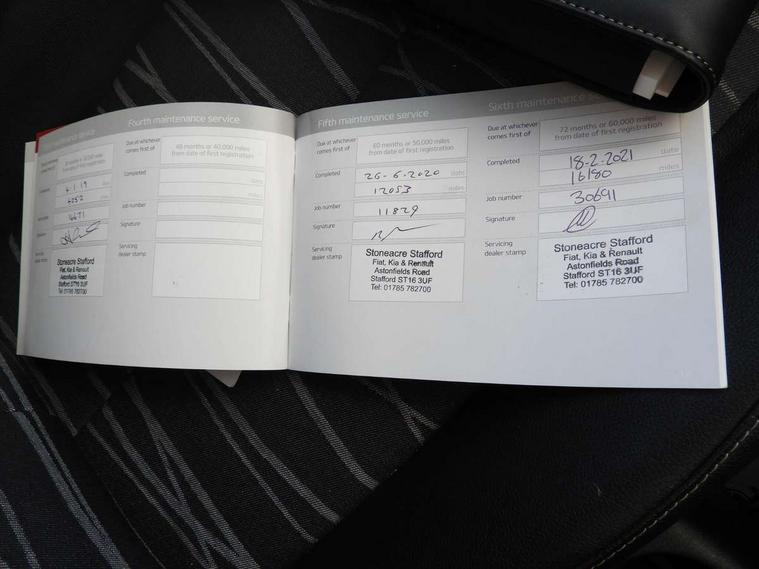 maintenance service
months or 30,000 miles
from date of first registration
4.1.19
date
6252
miles
16671
Stoneacre Stafford
Fiat, Kia & Renault
Astonfields Road
Stafford ST16 3UF
Tel: 01785 782700
Fourth maintenance service
Due at whichever
comes first of
48 months or 40,000 miles
from date of first registration
Completed
date
miles
Job number
Signature
Servicing
dealer stamp
Fifth maintenance service
Due at whichever
comes first of
60 months or 50,000 miles
from date of first registration
Completed
26-6-2020
date
12053
miles
Job number
11829
Signature
Servicing
dealer stamp
Stoneacre Stafford
Fiat, Kia & Renault
Astonfields Road
Stafford ST16 3UF
Tel: 01785 782700
Sixth maintenance
Due at whichever
comes first of
72 months or 60,000 miles
from date of first registration
Completed
18-2-2021
date
16180
miles
Job number
30691
Signature
Servicing
dealer stamp
Stoneacre Stafford
Fiat, Kia & Renault
Astonfields Road
Stafford ST16 3UF
Tel: 01785 782700